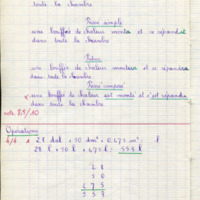 dans toute la chambre
Passé simple
une bouffée de chaleur monta et se répandit
dans toute la chambre
Futur
une bouffée de chaleur montera et se répandra
dans toute la chambre
Passé composé
une bouffée de chaleur est montée et s'est répandue
dans toute la chambre
note 8½/10
Opérations
28 dal + 50 dm³ + 0,475 m³ = l
28 l + 50 l + 475 l = 553 l
28
50
475
553